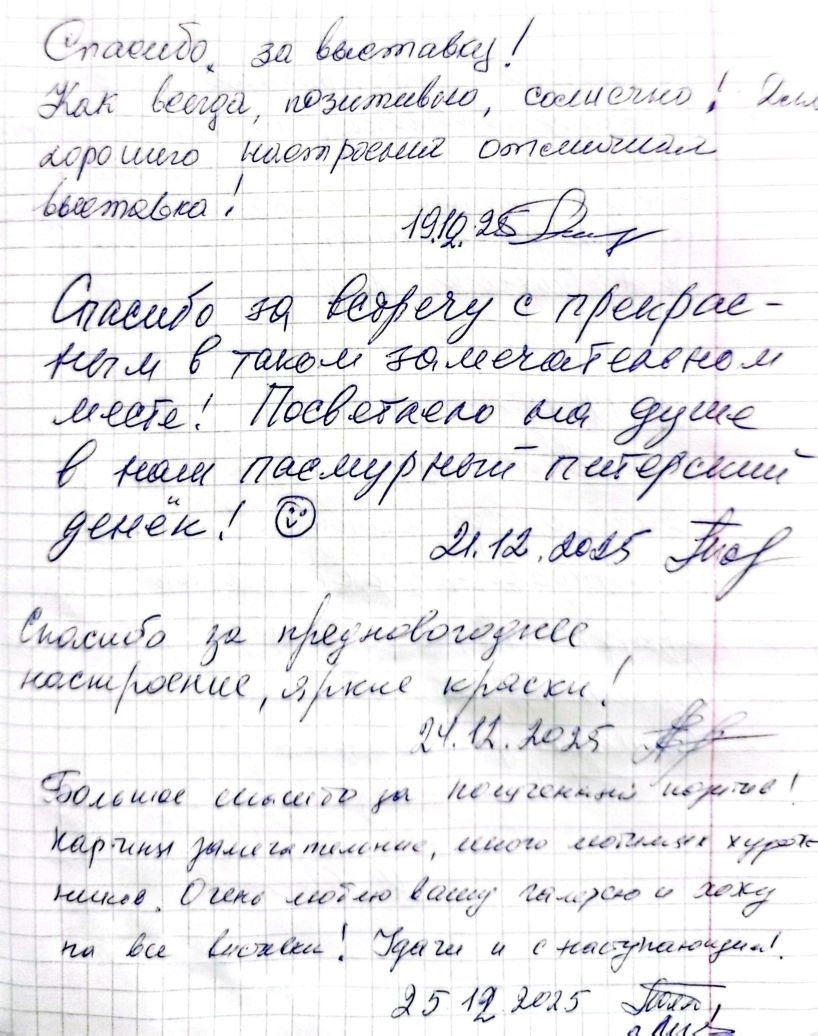 Спасибо за выставку!
Как всегда, позитивно, солнечно! Для
хорошего настроения отличная
выставка!
19.12.25
Спасибо за встречу с прекрас-
ным в таком замечательном
месте! Посветлело на душе
в наш пасмурный питерский
денёк! ☺
21.12.2025
Спасибо за предновогоднее
настроение, яркие краски!
24.12.2025
Большое спасибо за полученный позитив!
Картины замечательные, много любимых худож-
ников. Очень люблю вашу галерею и хожу
на все выставки! Удачи и с наступающим!
25 12 2025